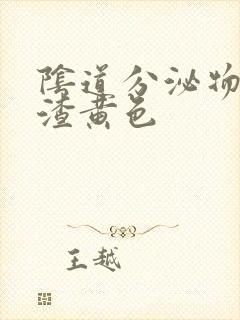 陰道分泌物
渣黄色
王越